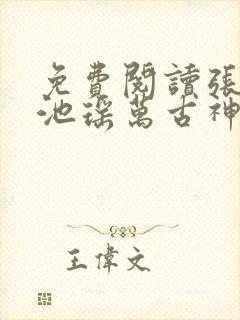 免費閱讀張
池瑤萬古神
王偉文